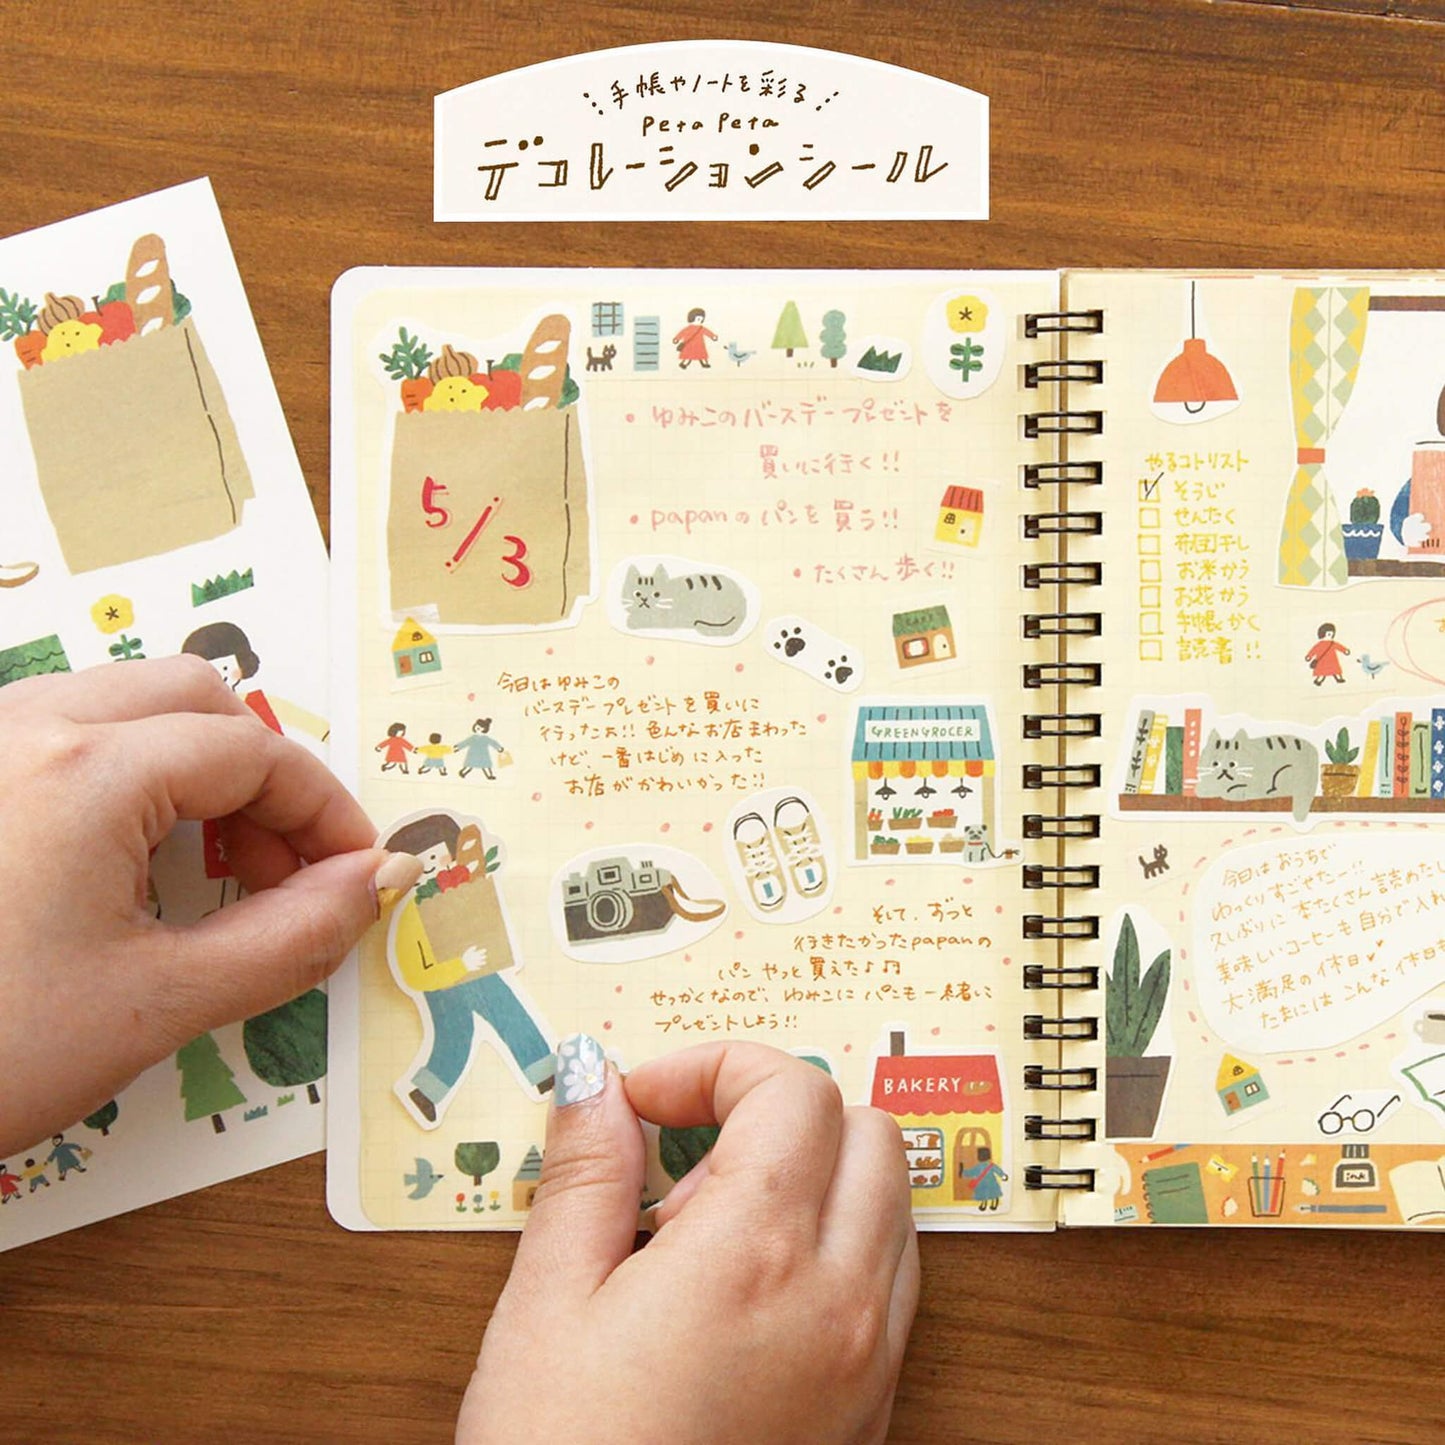 手帳やノートを彩る
Peta Peta
デコレーションシール
5/3
・ゆみこのバースデープレゼントを
買いに行く!!
・papanのパンを買う!!
・たくさん歩く!!
CAFE
今日はゆみこの
バースデープレゼントを買いに
行ったよ!! 色んなお店まわった
けど、一番はじめに入った
お店がかわいかった!!
GREENGROCER
そして、ずっと
行きたかったpapanの
パンやっと買えた♪♫
せっかくなので、ゆみこにパンも一緒に
プレゼントしよう!!
BAKERY
やるコトリスト
そうじ
せんたく
布団干し
お米かう
お花かう
手帳かく
読書!!
今日はおうちで
ゆっくりすごせたー!!
久しぶりに本たくさん読めたし
美味しいコーヒーも自分で入れ
大満足の休日♥
たまにはこんな休日も
ink